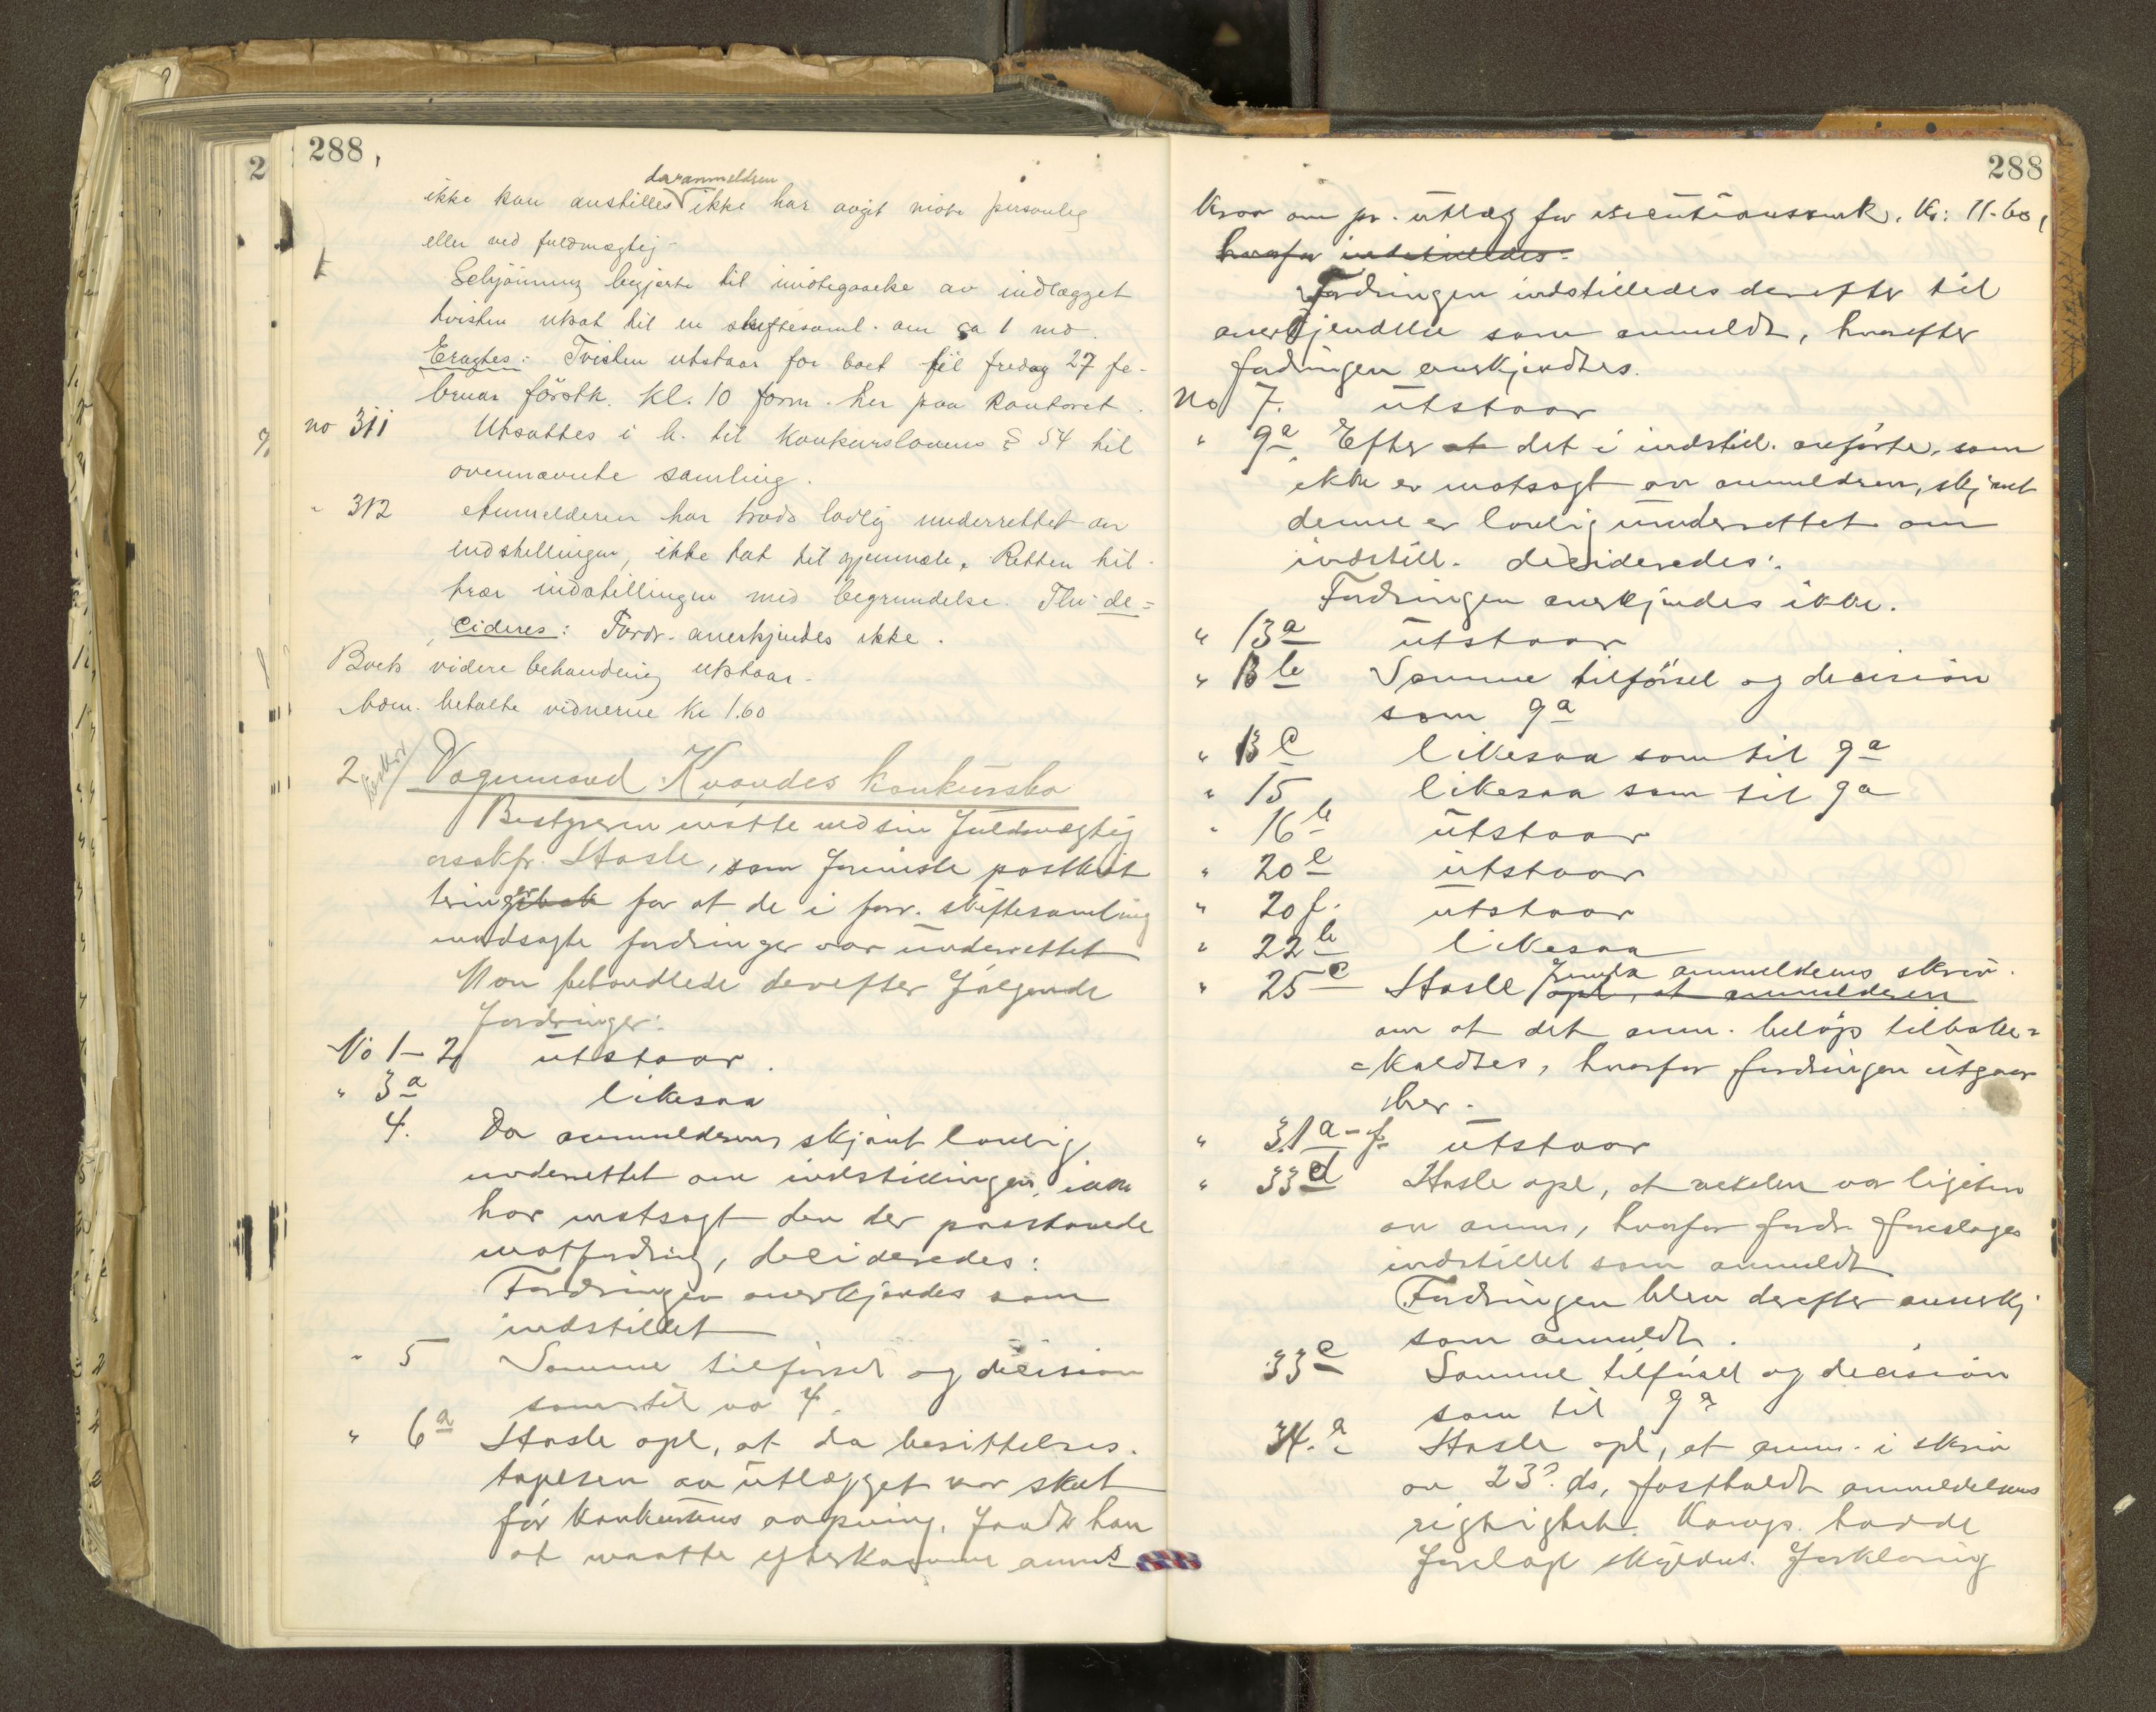 288
da anmelderen
ikke kan anstilles ikke har avgit møte personlig
eller ved fuldmægtig
Schjønning begjærte til imøtegaaelse av indlægget
tvisten utsat til en skiftesaml. om ca 1 md
Eragtes: Tvisten utstaar for boet til fredag 27 fe-
bruar førstk. kl. 10 form. her paa kontoret.
no 311 Utsattes i h. til konkurslovens § 54 til
ovennævnte samling.
" 312 Anmelderen har trods lovlig underrettet om
indstillingen, ikke tat til gjenmæle. Retten til-
træer indstillingen med begrundelse. Thi de=
cideres: Fordr. anerkjendes ikke.
Boets videre behandling utstaar.
Bom. betalte vidnerne Kr 1.60
2 Vognmand Kvandes konkursbo
Bestyreren møtte ved sin fuldmægtig
orsakfr. Hasle, som foreviste postkvit
teringer for at de i forr. skiftesamling
modsagte fordringer var underrettet
Man behandlede derefter følgende
fordringer:
No 1-2 utstaar.
" 3a likesaa
4. Da anmelderen skjønt lovlig
underrettet om indstillingen, ikke
har motsagt den der paastaaede
motfordring, decideredes:
Fordringen anerkjendes som
indstillet
" 5 Samme tilførsel og decision
som til no 4.
" 6a Hasle opl, at da besittelses-
tagelsen av utlægget var skeet
før konkursens aapning, fandt han
at maatte efterkomme anms
288
krav om pr. utlæg for executionsomk. Kr: 11.60,
hvorfor indstilledes
Fordringen indstilledes derefter til
anerkjendelse som anmeldt, hvorefter
fordringen anerkjendtes.
No 7. utstaar
" 9a Efter at det i indstill. anførte, som
ikke er motsagt av anmelderen, skjønt
denne er lovlig underrettet om
indstill. decideredes:
Fordringen anerkjendes ikke.
" 13a utstaar
" 13b Samme tilførsel og decision
som 9a
" 13c likesaa som til 9a
" 15 likesaa som til 9a
" 16b utstaar
" 20e utstaar
" 20f. utstaar
" 22b likesaa
" 25c Hasle opl, at anmelderen
anmelderens skriv.
om at det anm. beløp tilbake=
=kaldtes, hvorfor fordringen utgaar
her.
" 31a-f utstaar
" 33d Hasle opl, at vekslen var
av anm, hvorfor fordr. foreslages
indstillet som anmeldt
Fordringen blev derefter anerkj
som anmeldt.
33e Samme tilførsel og decision
som til 9a
34.a Hasle opl, at anm. i skriv
av 23. ds, fastholdt anmeldelsens
rigtighet. Komp. hadde
forelagt skyldn. forklaring